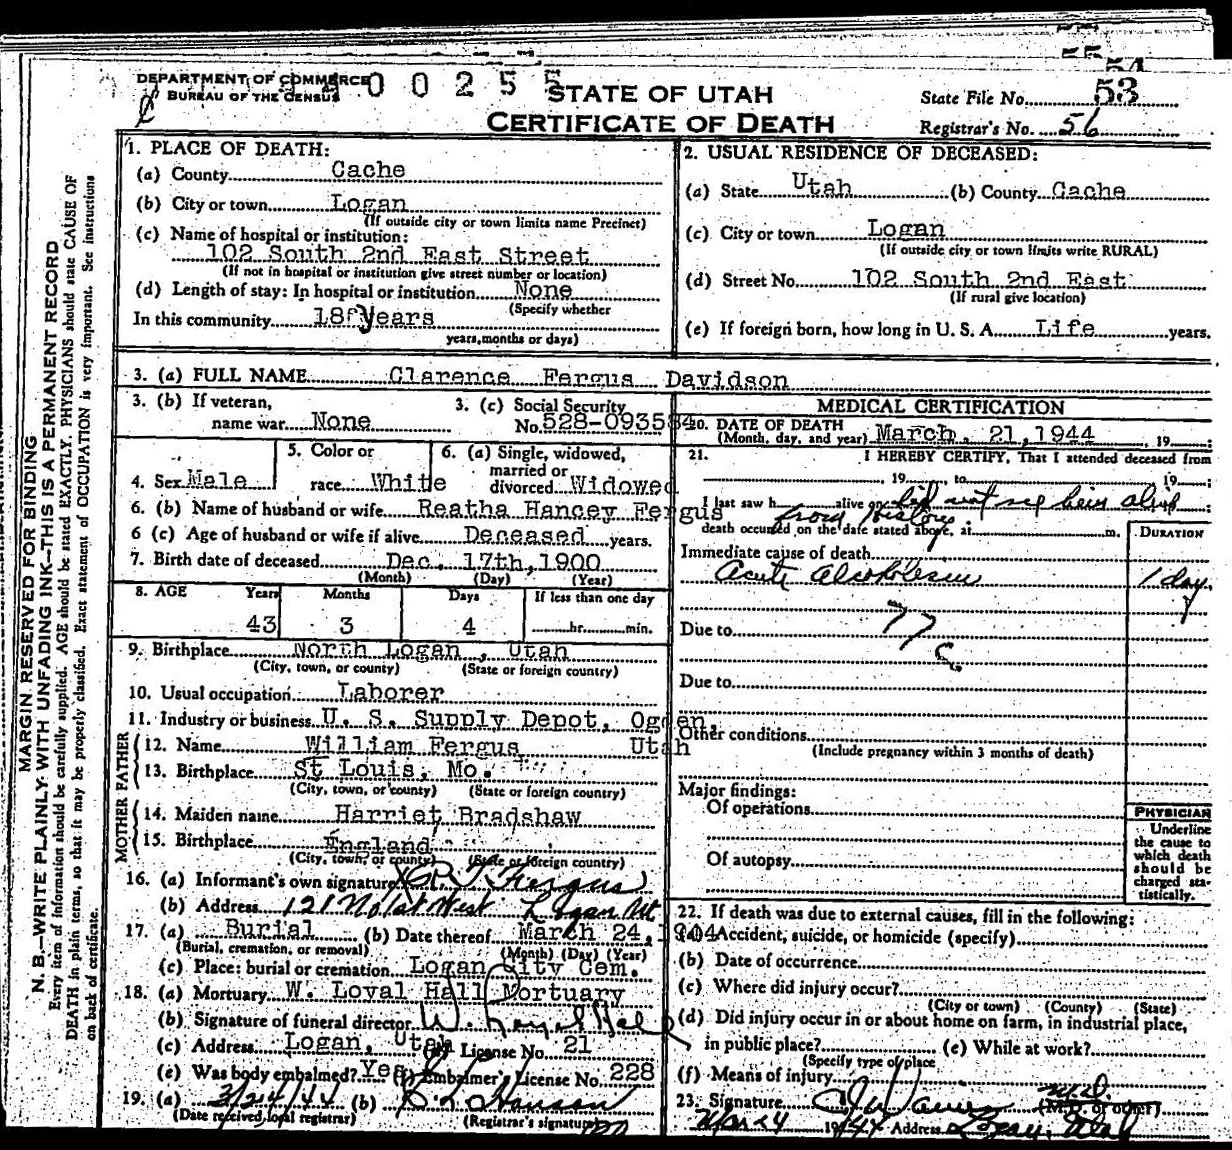 DEPARTMENT OF COMMERCE
BUREAU OF THE CENSUS
0 0 2 5 5
STATE OF UTAH
CERTIFICATE OF DEATH
55
54
State File No. 53
Registrar's No. 56
MARGIN RESERVED FOR BINDING
N. B.—WRITE PLAINLY WITH UNFADING INK—THIS IS A PERMANENT RECORD
Every item of information should be carefully supplied. AGE should be stated EXACTLY. PHYSICIANS should state CAUSE OF
DEATH in plain terms, so that it may be properly classified. Exact statement of OCCUPATION is very important. See instructions
on back of certificate.
1. PLACE OF DEATH:
(a) County Cache
(b) City or town Logan
(If outside city or town limits name Precinct)
(c) Name of hospital or institution:
102 South 2nd East Street
(If not in hospital or institution give street number or location)
(d) Length of stay: In hospital or institution None
(Specify whether
In this community 18 Years
years, months or days)
2. USUAL RESIDENCE OF DECEASED:
(a) State Utah (b) County Cache
(c) City or town Logan
(If outside city or town limits write RURAL)
(d) Street No. 102 South 2nd East
(If rural give location)
(e) If foreign born, how long in U. S. A. Life years.
3. (a) FULL NAME Clarence Fergus Davidson
3. (b) If veteran,
name war None
3. (c) Social Security
No. 528-093584
4. Sex Male
5. Color or
race White
6. (a) Single, widowed,
married or
divorced Widowed
6. (b) Name of husband or wife Reatha Hancey Fergus
6 (c) Age of husband or wife if alive Deceased years.
7. Birth date of deceased Dec. 17th, 1900
(Month) (Day) (Year)
8. AGE Years Months Days If less than one day
43 3 4 hr. min.
9. Birthplace North Logan, Utah
(City, town, or county) (State or foreign country)
10. Usual occupation Laborer
11. Industry or business U. S. Supply Depot, Ogden,
Utah
FATHER
12. Name William Fergus
13. Birthplace St Louis, Mo.
(City, town, or county) (State or foreign country)
MOTHER
14. Maiden name Harriet Bradshaw
15. Birthplace England
(City, town, or county) (State or foreign country)
16. (a) Informant's own signature Fergus
(b) Address 121 No 1st West Logan Ut
17. (a) Burial (b) Date thereof March 24, 1944
(Burial, cremation, or removal) (Month) (Day) (Year)
(c) Place: burial or cremation Logan City Cem.
18. (a) Mortuary W. Loyal Hall Mortuary
(b) Signature of funeral director W. Loyal Hall
(c) Address Logan, Utah (d) License No. 21
(e) Was body embalmed? Yes (f) Embalmer's License No. 228
19. (a) 3/24/44 (b) Hanson
(Date received local registrar) (Registrar's signature)
MEDICAL CERTIFICATION
20. DATE OF DEATH
(Month, day, and year) March, 21, 1944, 19
21. I HEREBY CERTIFY, That I attended deceased from
, 19 , to , 19 ;
I last saw h alive on did not see him alive
from history
death occurred on the date stated above, at m.
DURATION
Immediate cause of death
Acute Alcoholism 1 day
Due to 77
c
Due to
Other conditions
(Include pregnancy within 3 months of death)
Major findings:
Of operations
Of autopsy
PHYSICIAN
Underline
the cause to
which death
should be
charged sta-
tistically.
22. If death was due to external causes, fill in the following:
(a) Accident, suicide, or homicide (specify)
(b) Date of occurrence
(c) Where did injury occur?
(City or town) (County) (State)
(d) Did injury occur in or about home on farm, in industrial place,
in public place? (e) While at work?
(Specify type of place
(f) Means of injury
23. Signature M.D.
(M.D. or other)
Mar 24 1944 Address Logan, Utah